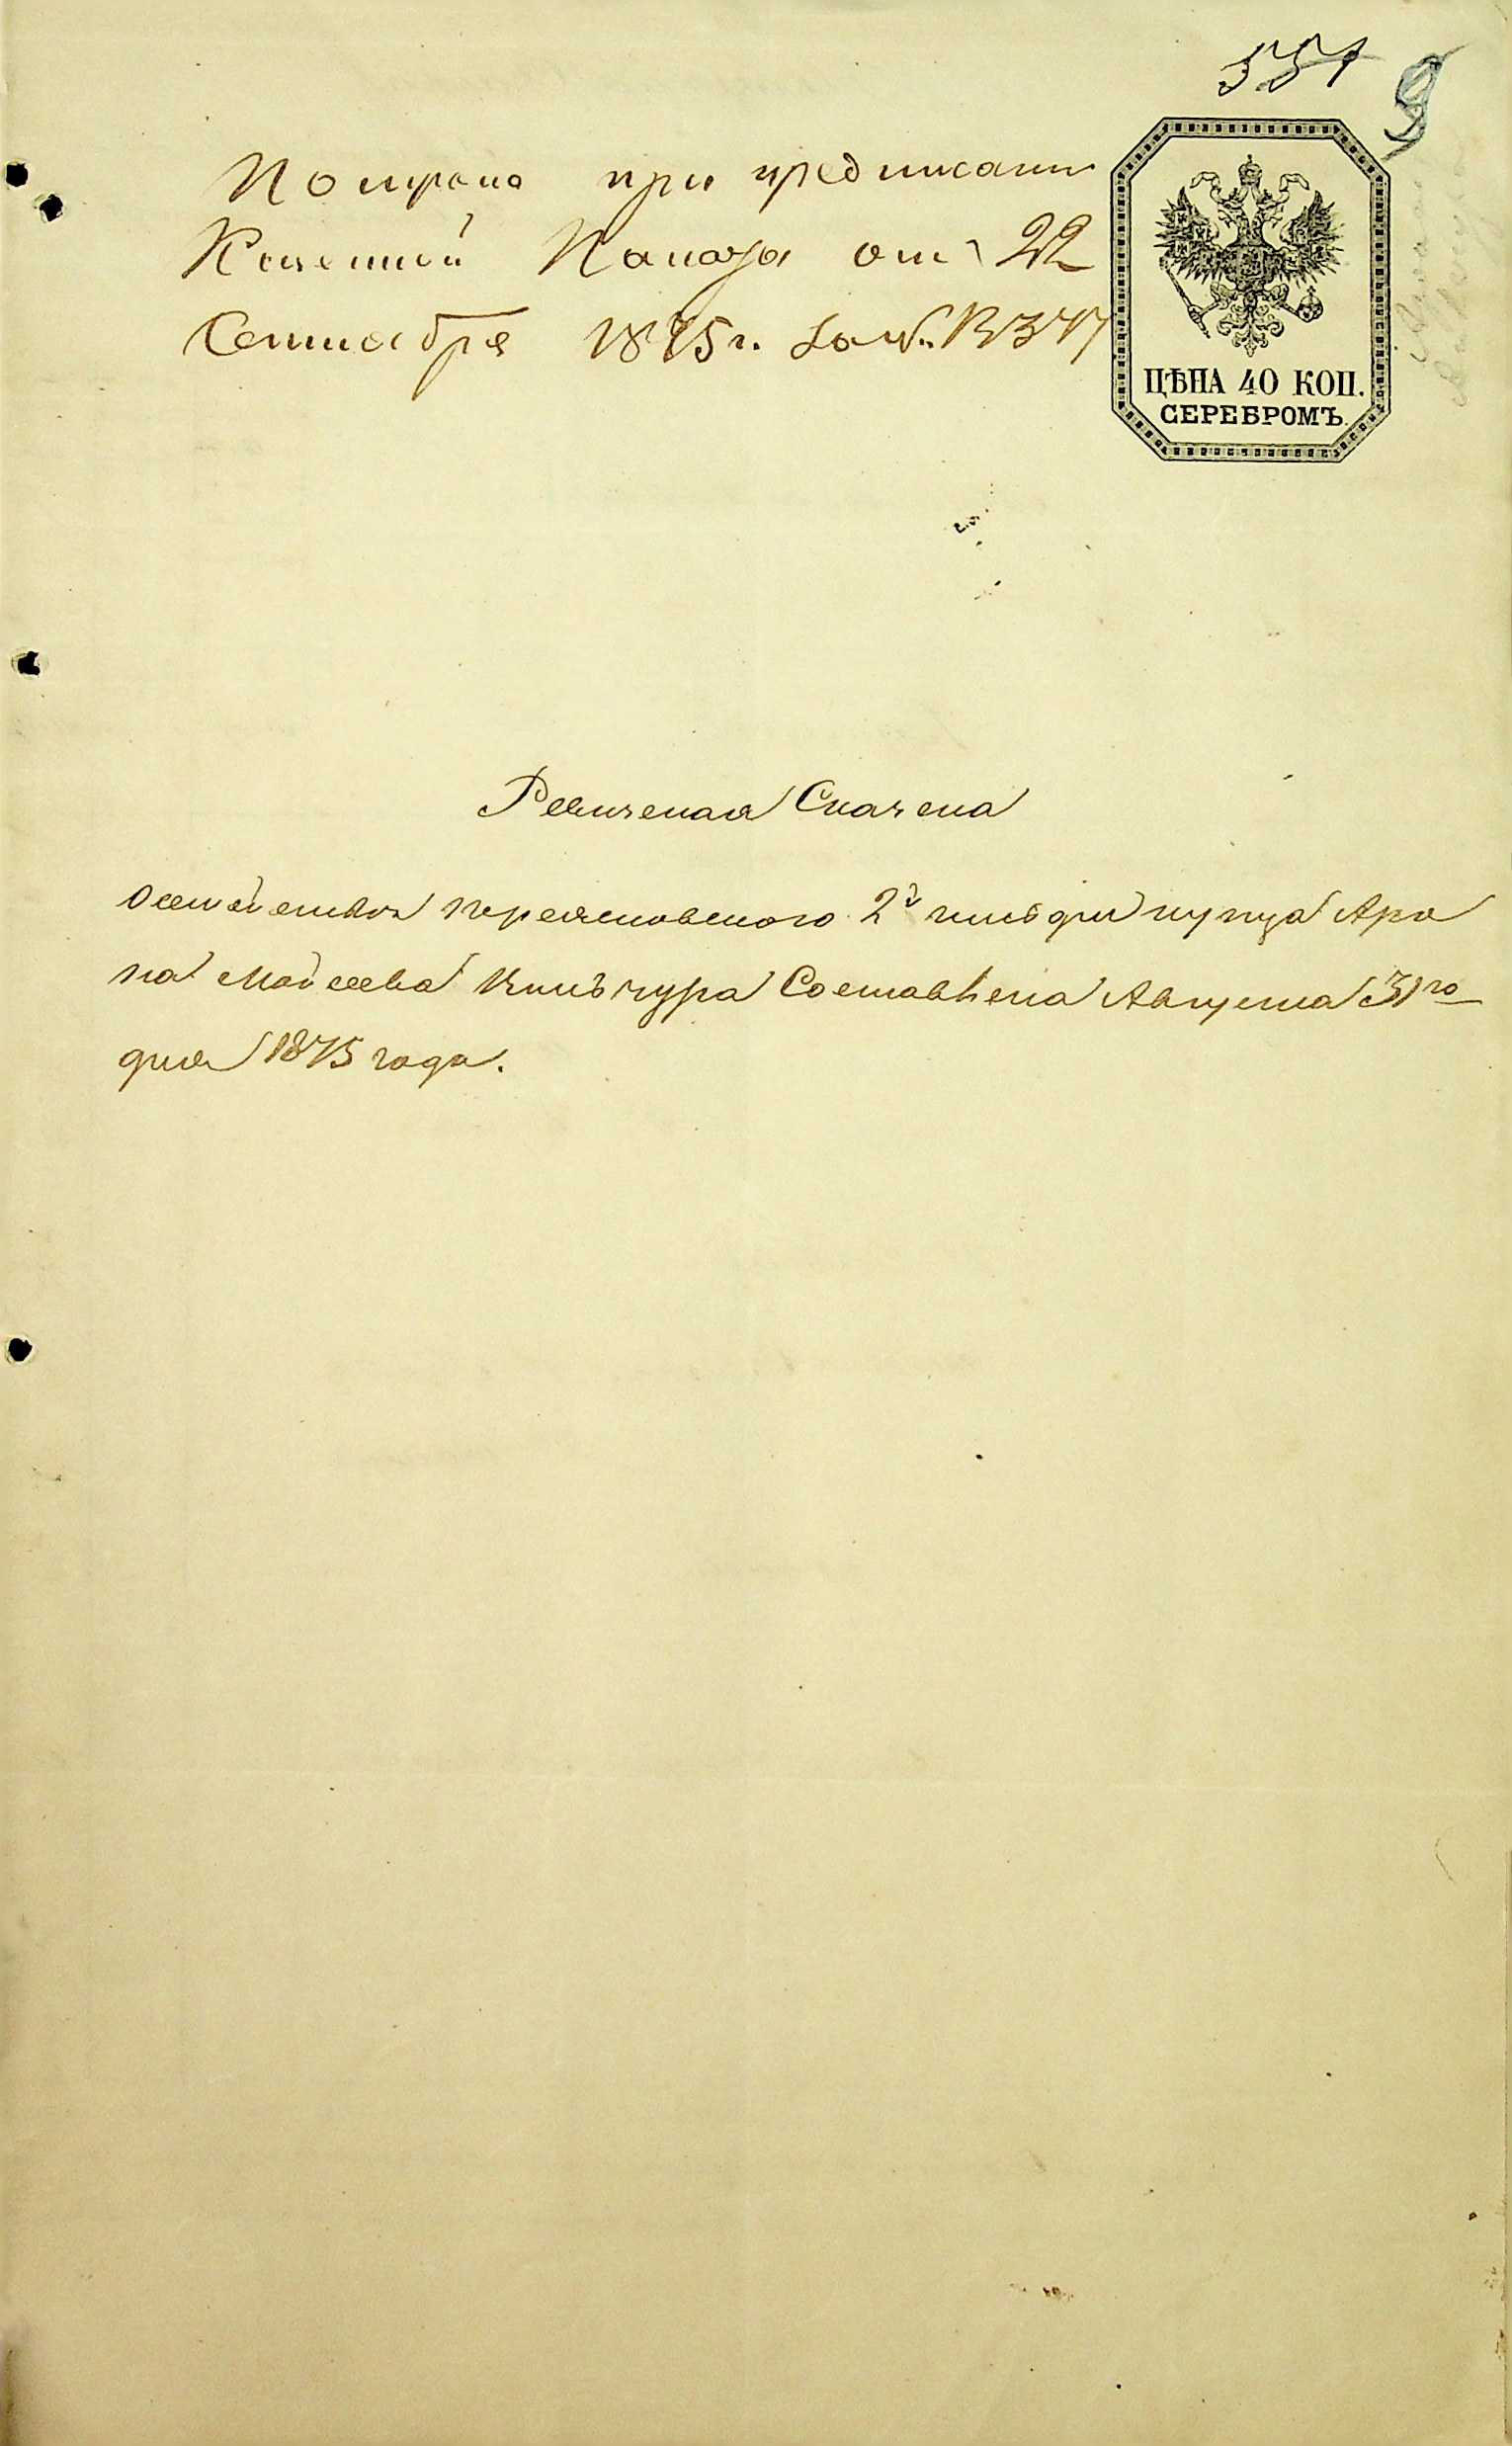 551 9
Получена при предписании
Казенной Палаты от 22
Сентября 1875 г. за №
ЦѢНА 40 КОП.
СЕРЕБРОМЪ.
Ревизская Сказка
О семействѣ Переясловского 2й гильдіи купца Аро
на Мойсеева Составлена Августа 31го
дня 1875 года.